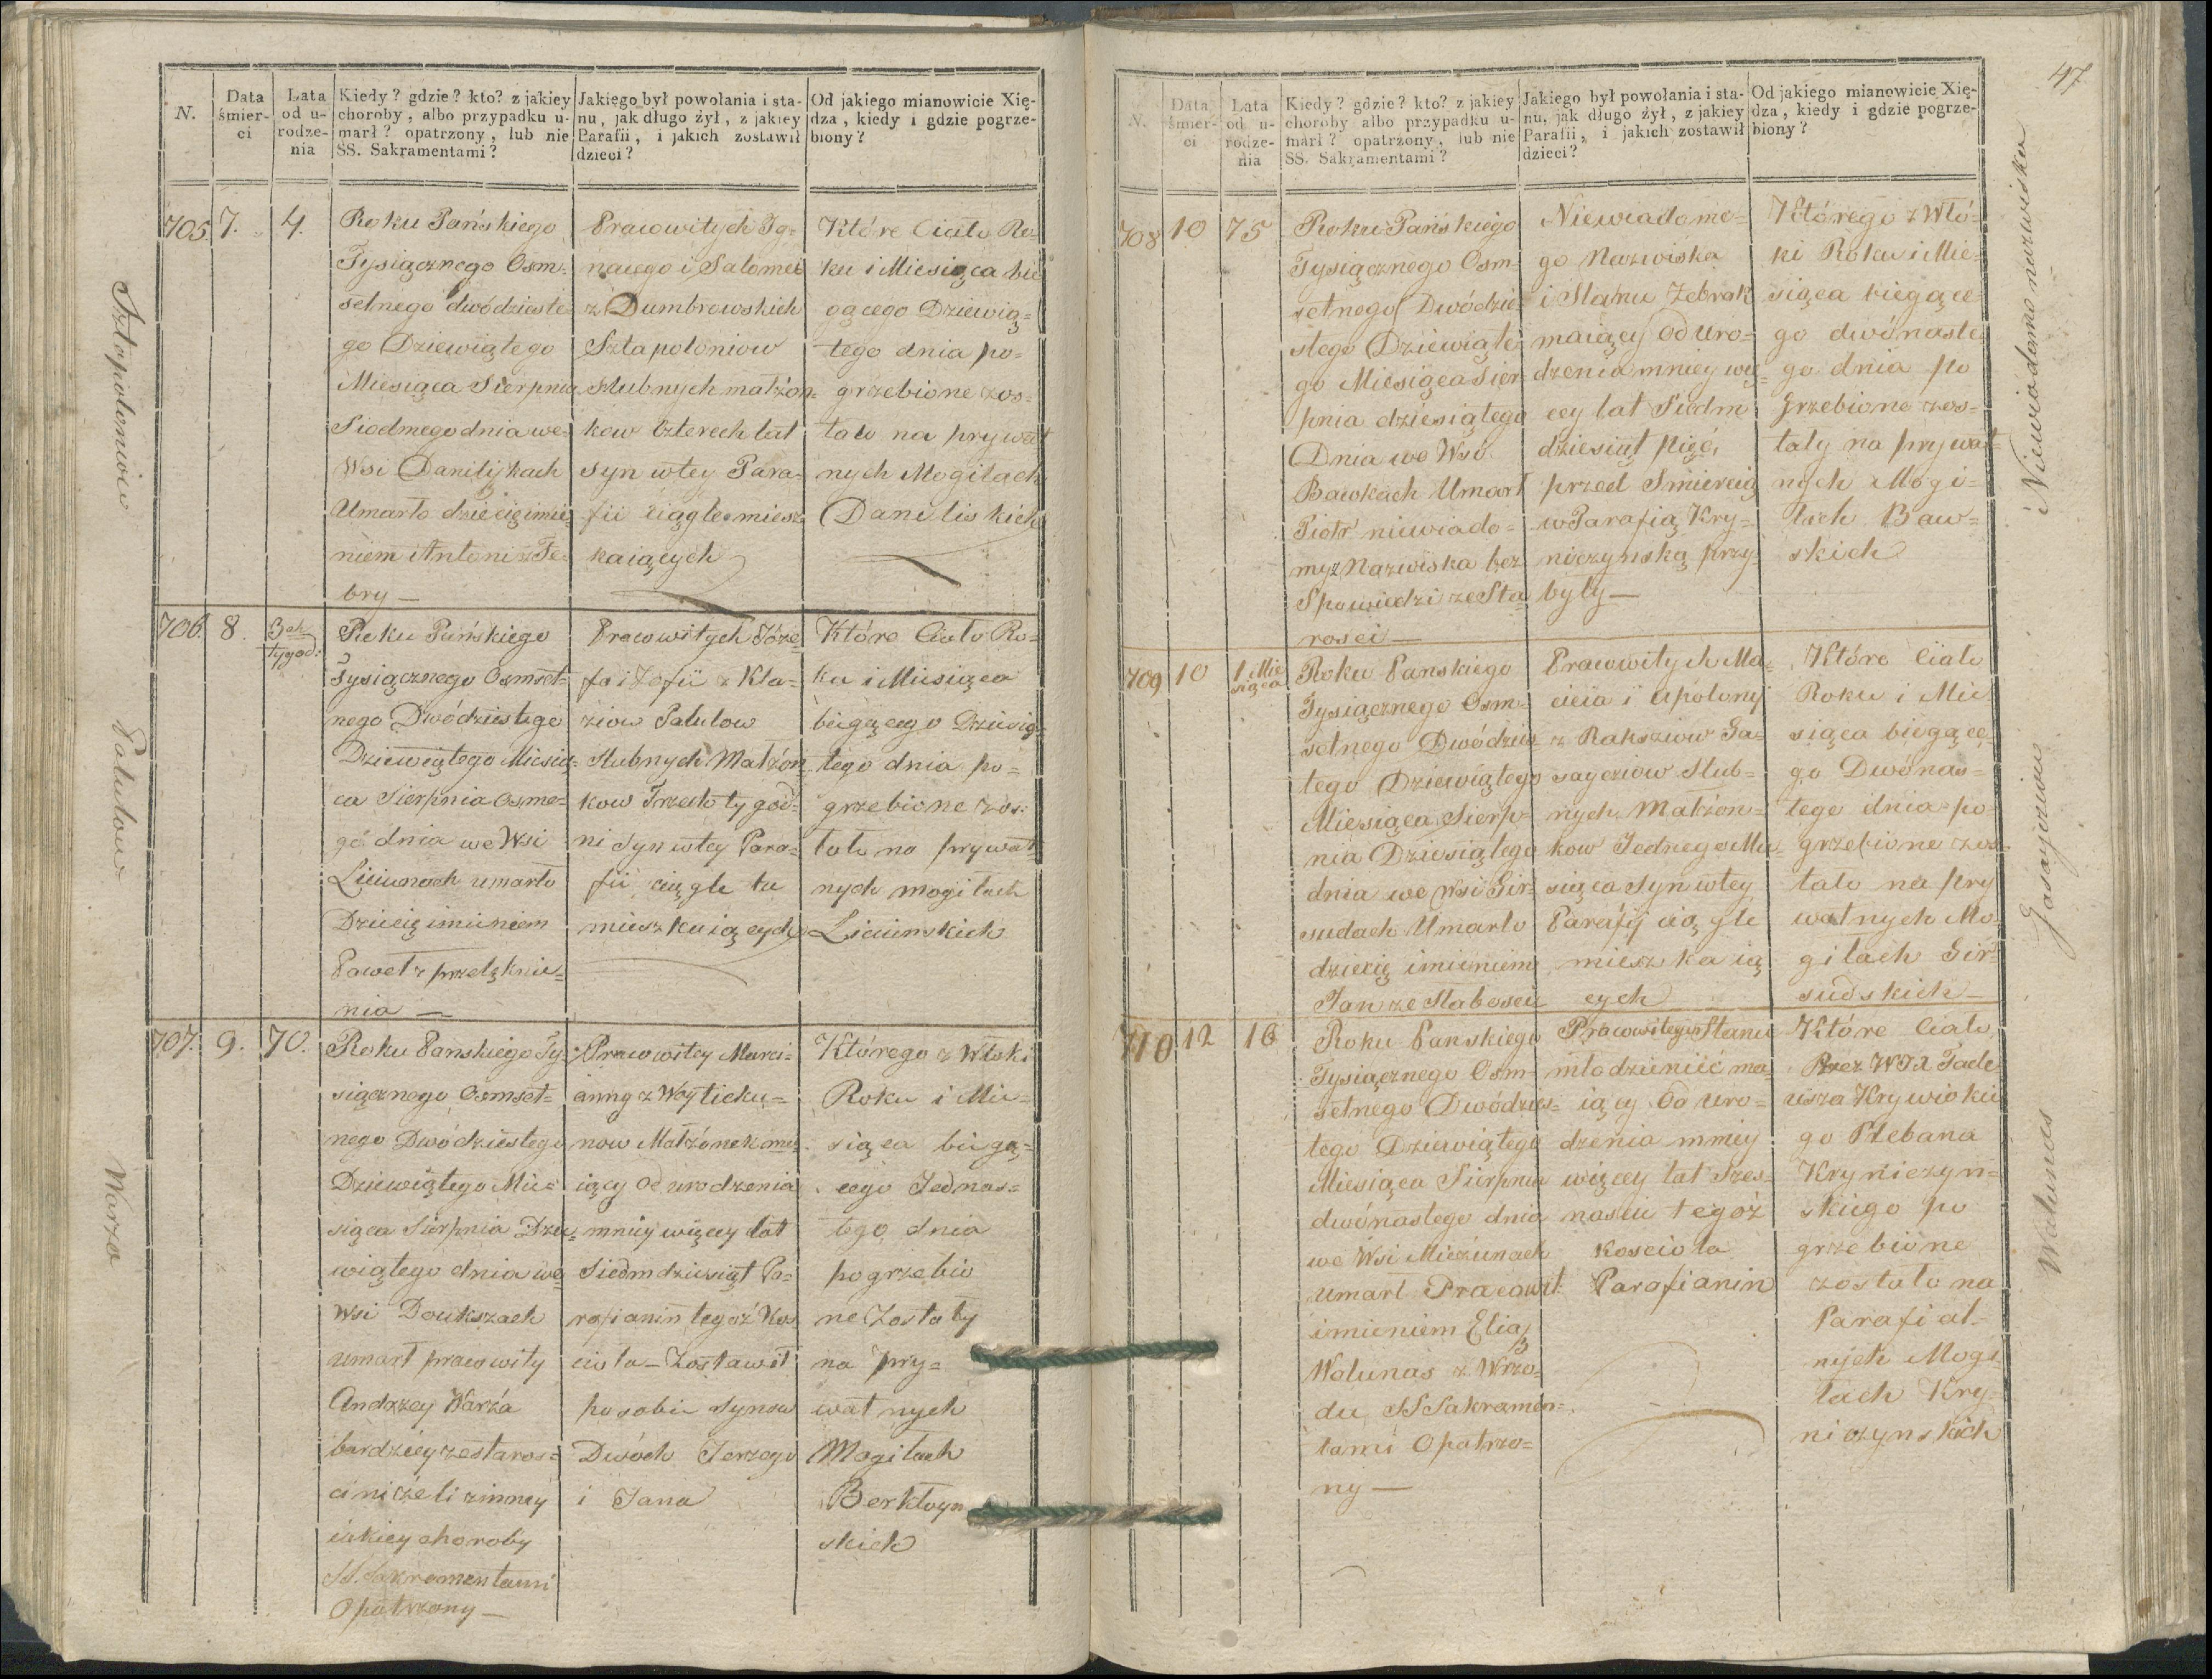 N.
Data śmier-
ci
Lata
od u-
rodze-
nia
Kiedy? gdzie? kto? z jakiey
choroby, albo przypadku u-
marł? opatrzony, lub nie
SS. Sakramentami?
Jakiego był powołania i sta-
nu, jak długo żył, z jakiey
Parafii, i jakich zostawił
dzieci?
Od jakiego mianowicie Xię-
dza, kiedy i gdzie pogrze-
biony?
Sztapoloniow
705.
7.
4.
Roku Pańskiego
Tysiącznego Osm-
setnego dwódzieste
go Dziewiątego
Miesiąca Sierpnia
Siodmego dnia we
Wsi Daniliskach
Umarło dziecię imie
niem Antoni z Fe-
bry —
Pracowitych Ig-
nacego i Salomei
z Dumbrowskich
Sztapoloniow
Slubnych małżon=
kow Czterech lat
syn w tey Para-
fii ciągle miesz
kaiących
Które Ciało Ro-
ku i Miesiąca bie
gącego Dziewią=
tego dnia po=
grzebione zos-
tało na prywat
nych Mogiłach
Daniliskich
Palulow
706.
8.
3ch
tygod:
Roku Pańskiego
Tysiącznego Osmset-
nego Dwódziestego
Dziewiątego Miesią-
ca Sierpnia Osme-
go dnia we Wsi
Liciunach umarło
Dziecię imieniem
Paweł z przelęknie=
nia —
Pracowitych Józe-
fa i Zofii z Kla-
ziow Palulow
Slubnych Małżon
kow Trzech tygod-
ni Syn w tey Para-
fii ciągle tu
mieszkaiących
Które Ciało Ro-
ku i Miesiąca
biegącego Dziewią-
tego dnia po=
grzebione zos-
tało na prywat
nych mogiłach
Liciunskich
Warza
707.
9.
70.
Roku Pańskiego Ty-
siącznego Osmset-
nego Dwódziestego
Dziewiątego Mie=
siąca Sierpnia Dzie-
wiątego dnia we
Wsi Doukszach
umarł pracowity
Andrzey Warża
bardziey ze staros=
ci niżeli z inney
iakiey choroby
SS. Sakramentami
Opatrzony —
Pracowitey Marci-
anny z Woyticku=
now Małżonek ma
iący od urodzenia
mniey więcey lat
Siedmdziesiąt Pa-
rafianin tegoż Kos
cioła - Zostawił
po sobie Synow
Dwóch Jerzego
i Jana
Którego Zwłoki
Roku i Mie=
siąca biegą=
cego Jednas=
tego dnia
pogrzebio
ne Zostały
na pry=
watnych
Mogiłach
Berktoyn
skich
47
N.
Data
śmier-
ci
Lata
od u-
rodze-
nia
Kiedy? gdzie? kto? z jakiey
choroby albo przypadku u-
marł? opatrzony, lub nie
SS. Sakramentami?
Jakiego był powołania i sta-
nu, jak długo żył, z jakiey
Parafii, i jakich zostawił
dzieci?
Od jakiego mianowicie Xię-
dza, kiedy i gdzie pogrze-
biony?
708
10
75
Roku Pańskiego
Tysiącznego Osm-
setnego Dwódzie-
stego Dziewiąte
go Miesiąca Sier
pnia dziesiątego
Dnia we Wsi
Bawkach Umarł
Piotr niewiado=
my z Nazwiska bez
Spowiedzi ze Sta
rosci —
Niewiadome-
go Nazwiska
i Stanu Żebrak
maiący od uro-
dzenia mniey wię-
cey lat Siedm
dziesiąt pięć,
przed Smiercią
w Parafią Kry-
niczynską przy-
były —
Którego Zwło-
ki Roku i Mie-
siąca biegące-
go dwónaste
go dnia po
grzebione zos-
tały na prywat
nych Mogi=
łach Baw=
skich
Niewiadomo nazwiska
709
10
1 Mie
siąca
Roku Panskiego
Tysiącznego Osm-
setnego Dwódzies
tego Dziewiątego
Miesiąca Sierp-
nia Dziesiątego
dnia we Wsi Gir-
sudach Umarło
dziecię imieniem
Jan ze Słabosci
Pracowitych Ma-
cieia i Apolonij
z Rakszow Ja-
sayciow Slub-
nych Małżon-
kow Jednego Mie-
siąca Syn w tey
Parafij ciągle
mieszkaią
cych
Które Ciało
Roku i Mie
siąca biegące
go Dwónas-
tego dnia po
grzebione zos-
tało na pry
watnych Mo
giłach Gir-
sudskich —
Jasayciow
710
12
16
Roku Panskiego
Tysiącznego Osm-
setnego Dwódzies-
tego Dziewiątego
Miesiąca Sierpnia
dwónastego dnia
we Wsi Mieżunach
umarł Pracowit
imieniem Eliasz
Walunas z Wrzo-
du SS Sakramen-
tami Opatrzo=
ny —
Pracowitego Stanu
młodzieniec ma
iący od uro-
dzenia mniey
więcey lat Szes-
nascie tegoż
Koscioła
Parafianin
Które Ciało
Przez WJX Tade
usza Krywickie
go Plebana
Kryniczyn=
skiego po
grzebione
zostało na
Parafial-
nych Mogi
łach Kry-
niczynskich
Walunas